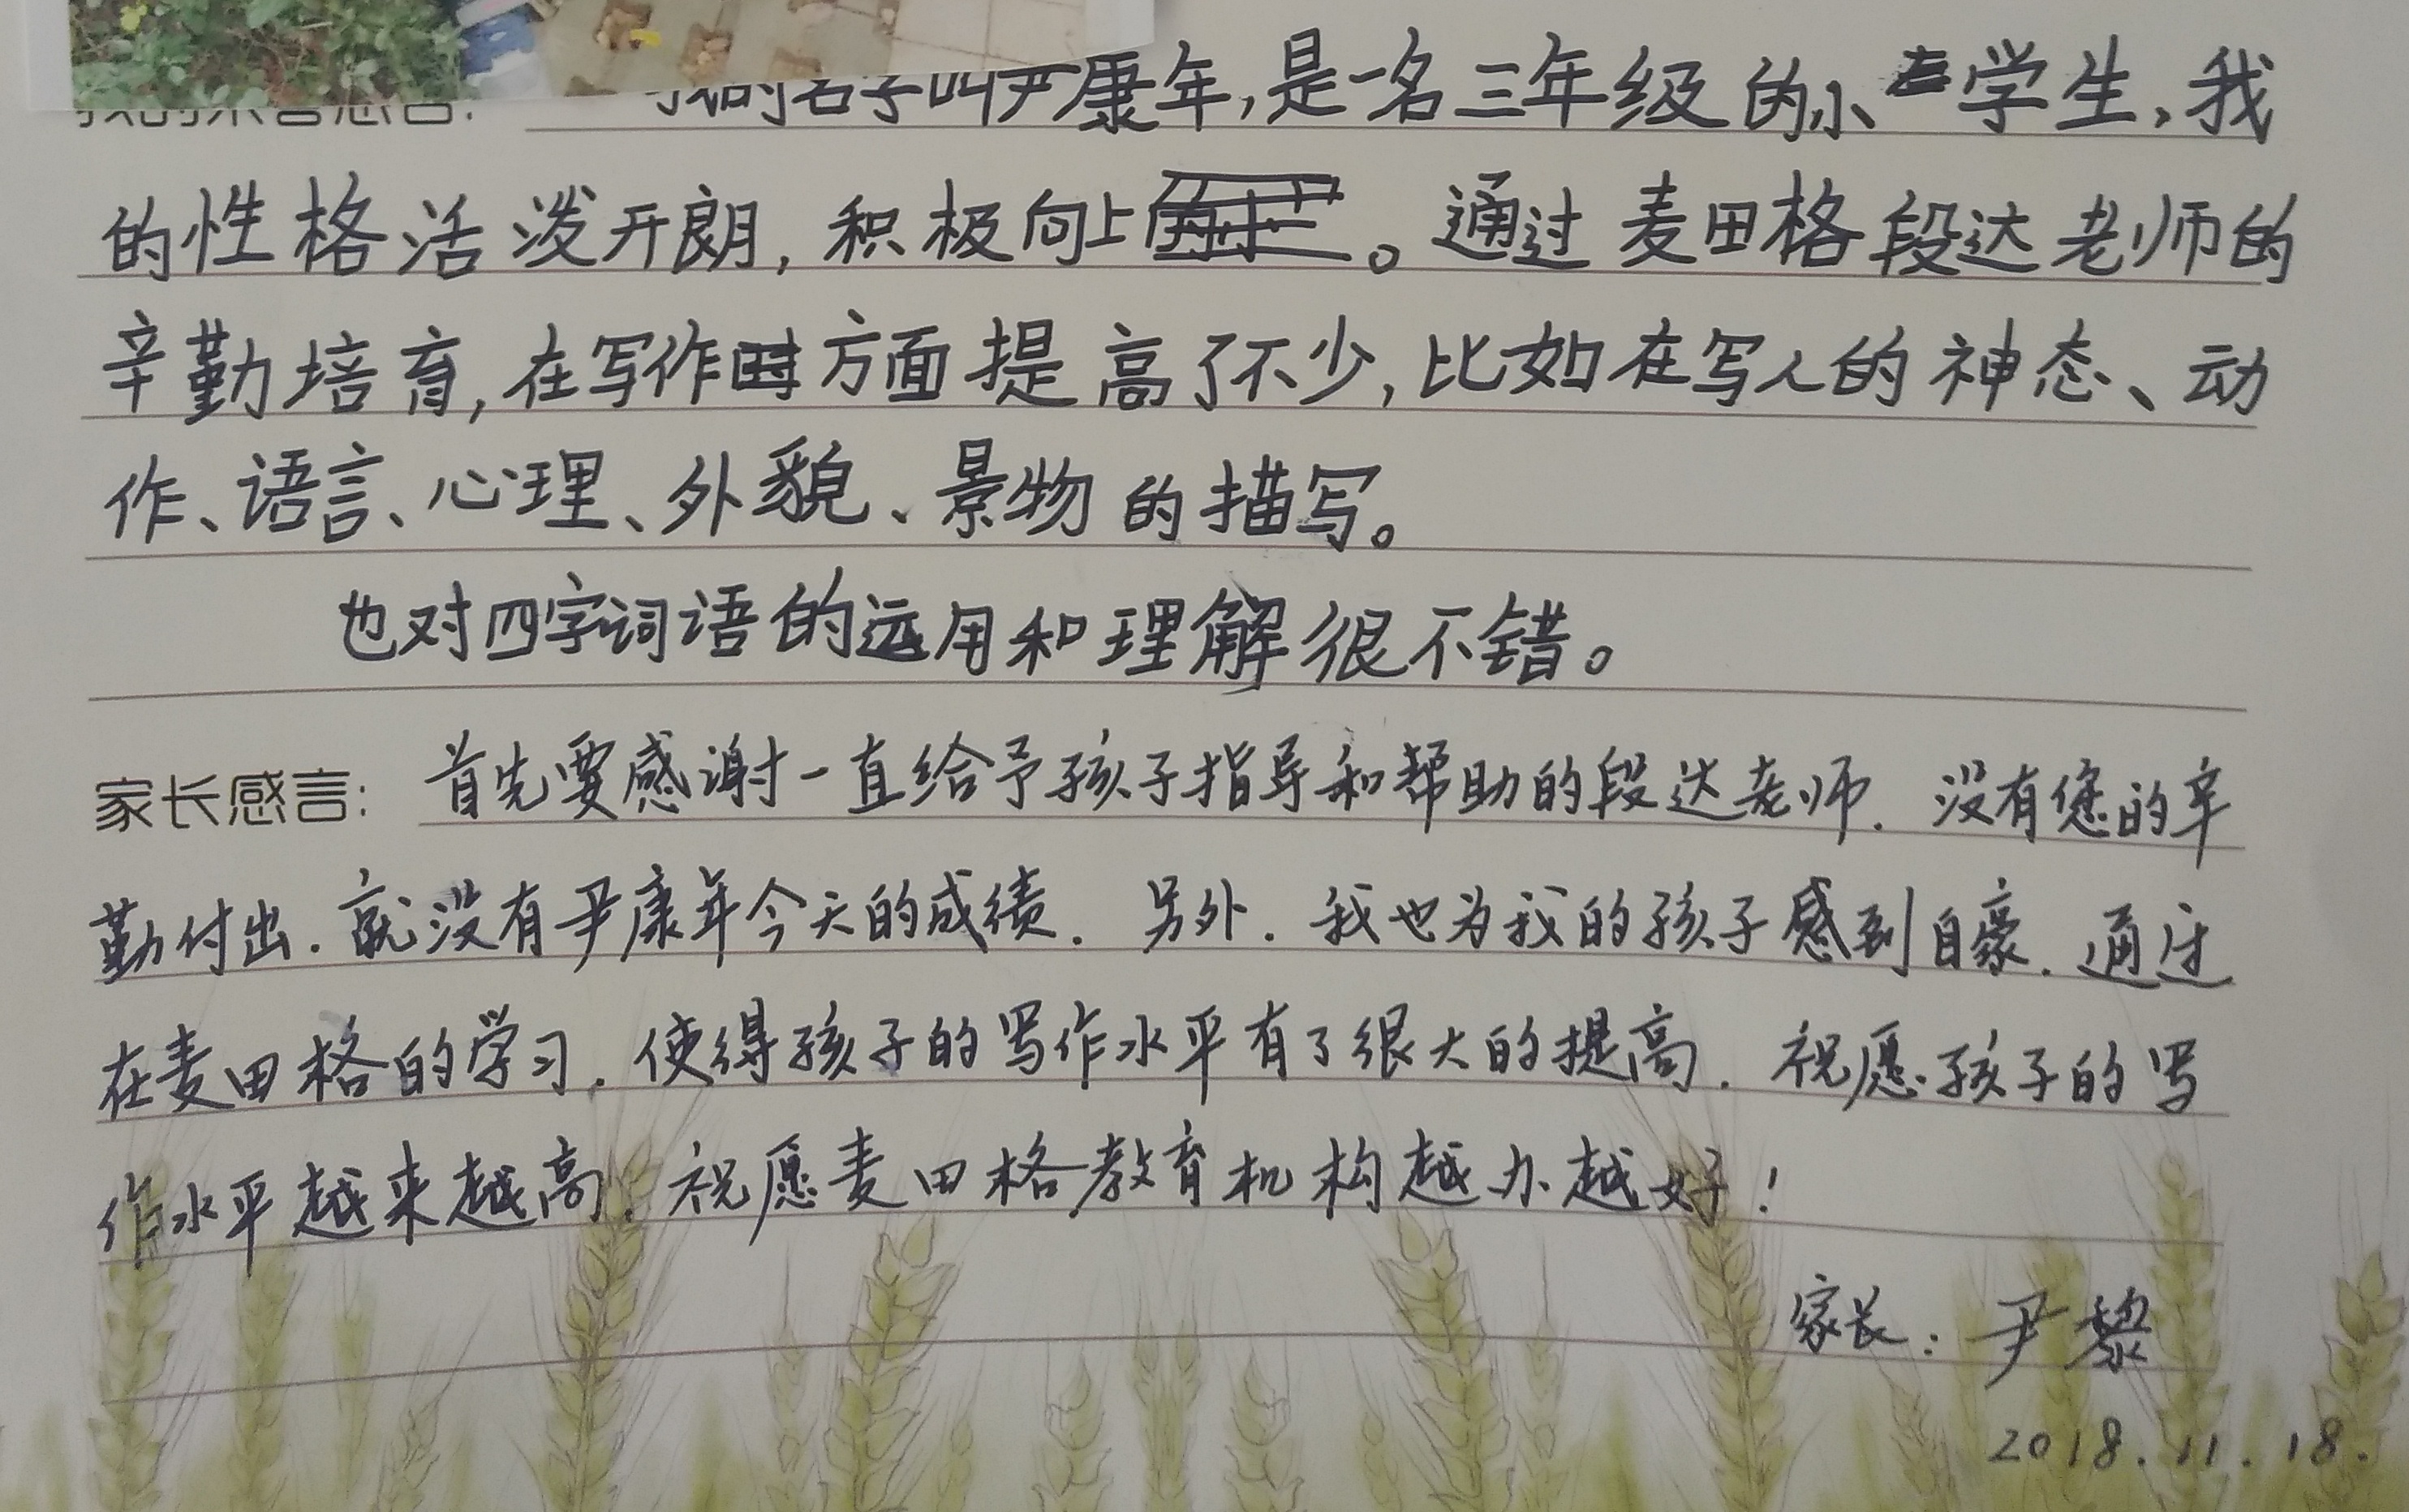 我的荣誉感言: 我的名字叫尹康年,是一名三年级的小学生,我
的性格活泼开朗,积极向上。通过麦田格段达老师的
辛勤培育,在写作时方面提高了不少,比如在写人的神态、动
作、语言、心理、外貌、景物的描写。
也对四字词语的运用和理解很不错。
家长感言: 首先要感谢一直给予孩子指导和帮助的段达老师. 没有您的辛
勤付出. 就没有尹康年今天的成绩. 另外. 我也为我的孩子感到自豪. 通过
在麦田格的学习. 使得孩子的写作水平有了很大的提高. 祝愿孩子的写
作水平越来越高. 祝愿麦田格教育机构越办越好!
家长: 尹黎
2018.11.18.